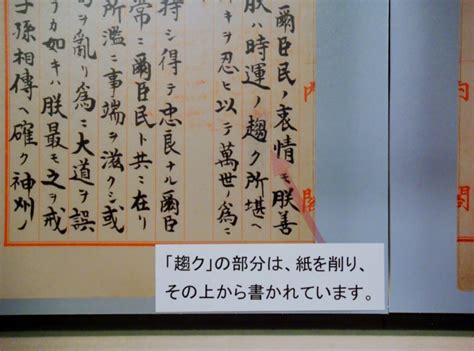 内閣
爾臣民ノ衷情モ朕善
朕ハ時運ノ趨ク所堪ヘ
キヲ忍ヒ以テ萬世ノ爲ニ
持シ得テ忠良ナル爾臣
常ニ爾臣民ト共ニ在リ
所濫ニ事端ヲ滋クシ或
局ヲ亂リ爲ニ大道ヲ誤
カ如キハ朕最モ之ヲ戒
子孫相傳ヘ確ク神州ノ
「趨ク」の部分は、紙を削り、
その上から書かれています。
閣